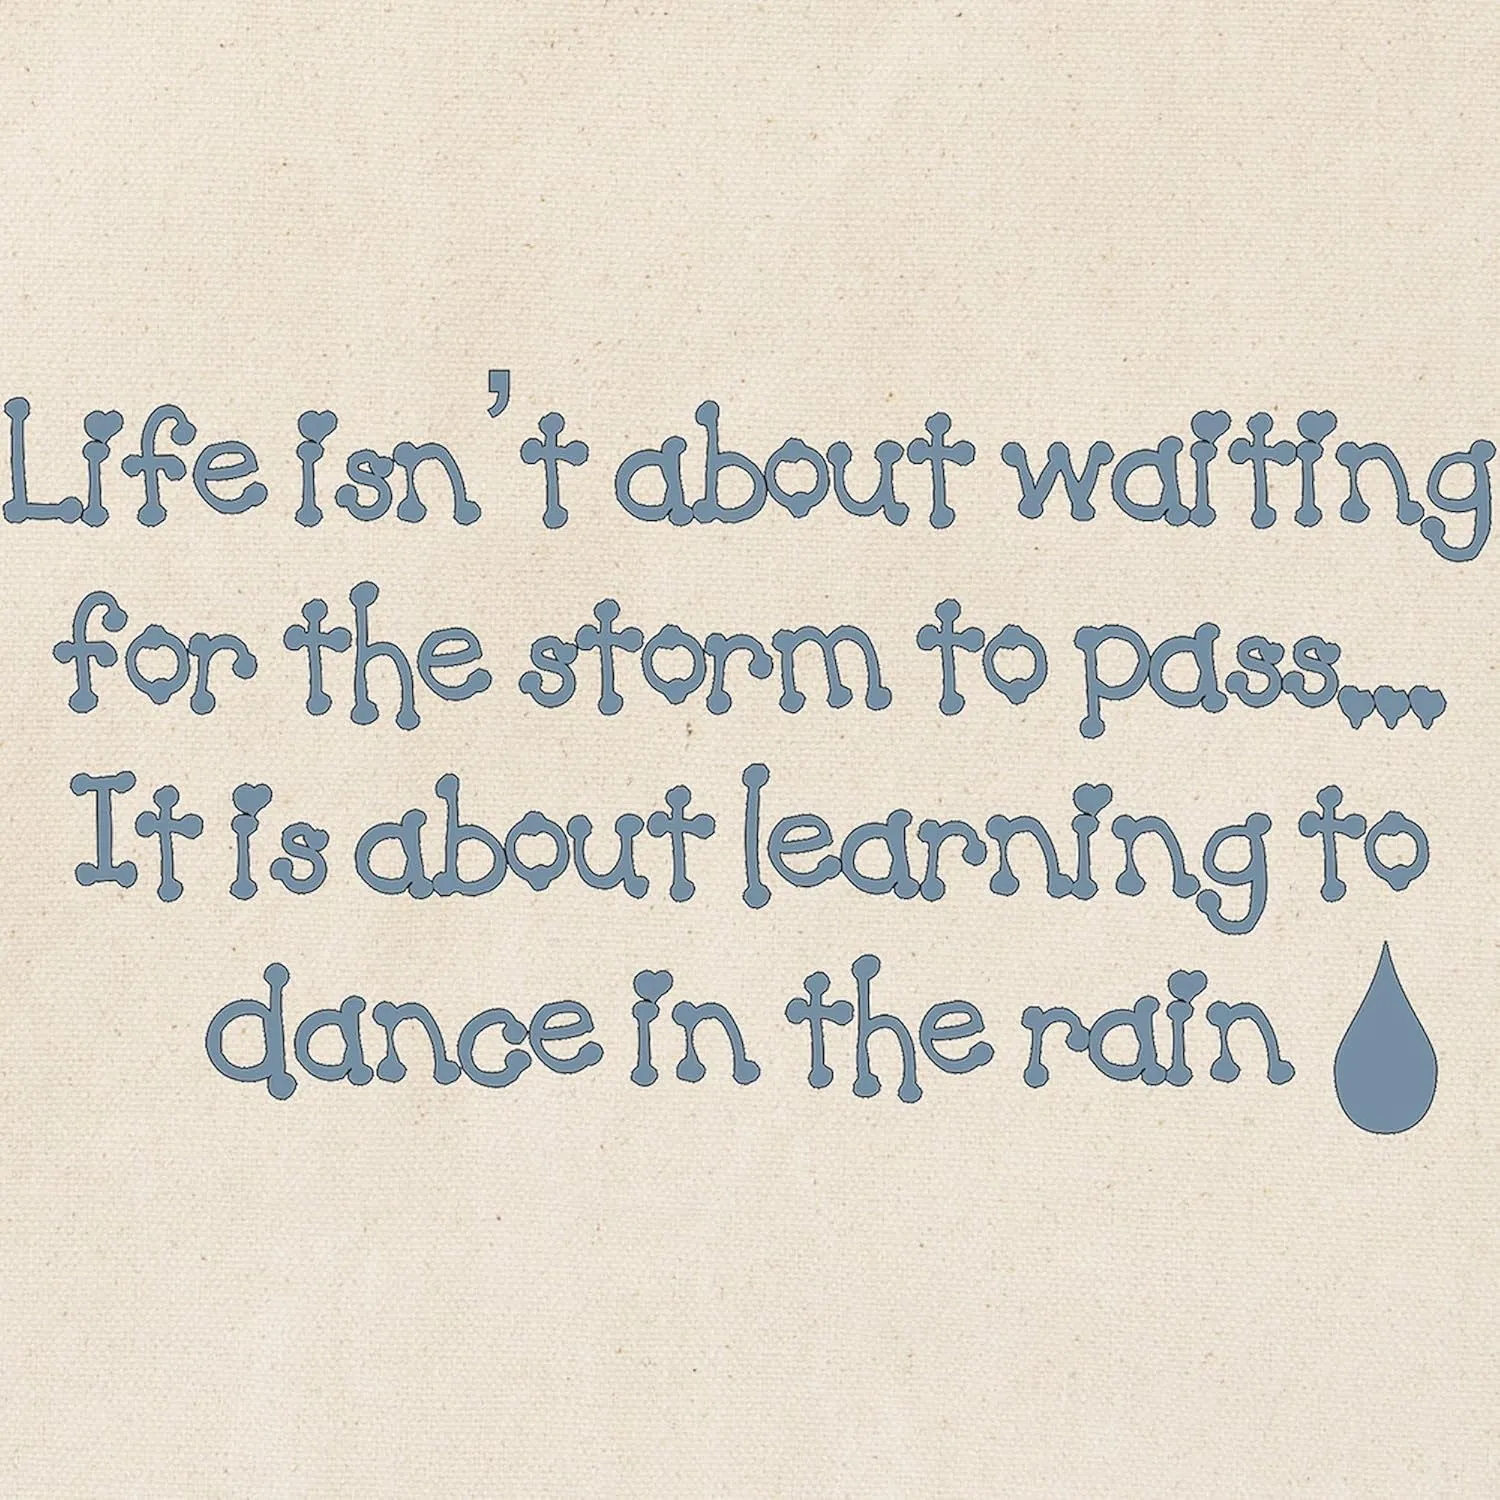 Life isn't about waiting
for the storm to pass...
It is about learning to
dance in the rain